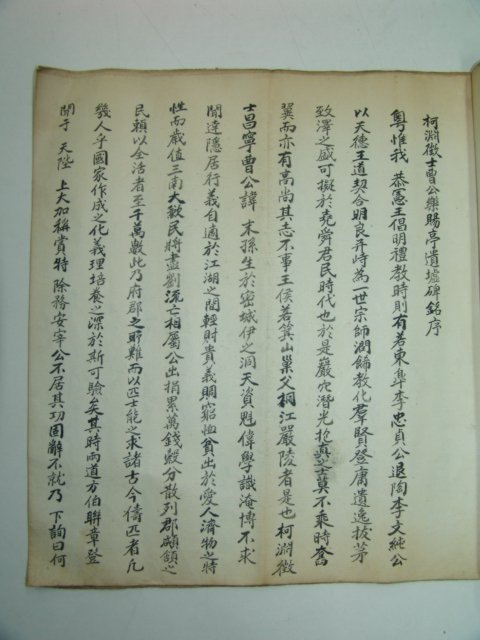 柯淵徵士曺公樂賜亭遺墟碑銘序
粤惟我 恭憲王倡明禮教時則有若東皐李忠貞公退陶李文純公
以天德王道契合明良并峙為一世宗師潤飾教化羣賢登庸遺逸拔茅
致澤之盛可擬於堯舜君民時代也於是巖穴潛光抱真之士莫不乘時奮
翼而亦有高尚其志不事王侯若箕山巢父桐江嚴陵者是也柯淵徵
士昌寧曺公諱 末孫生於密城伊之洞天資魁偉學識淹博不求
聞達隱居行義自適於江湖之間輕財貴義賙窮恤貧出於愛人濟物之特
性而歲值三南大歉民將盡劉流亡相屬公出捐累萬錢穀分散列郡顑頷之
民賴以全活者至千萬數此乃府郡之所難而以匹士能之求諸古今儔匹者凡
幾人乎國家作成之化義理培養之深於斯可驗矣其時兩道方伯聯章登
聞于 天陛 上大加稱賞特 除務安宰公不居其功固辭不就乃 下詢曰何